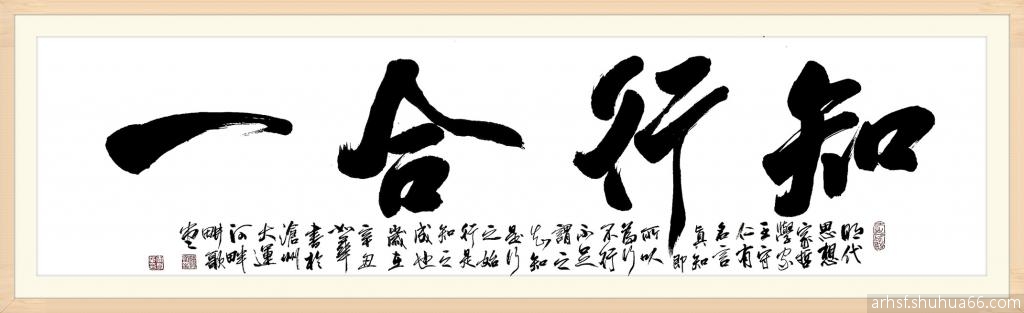 知行合一
明代
思想
家哲
學家
王守
仁有
名言
真知即
所以
為行
不行
不足
謂之
知知
是行
之始
行是
知之
成也
歲在
辛丑
華
書於
滄州
大運
河畔
畊歌
arhsf.shuhua66.com